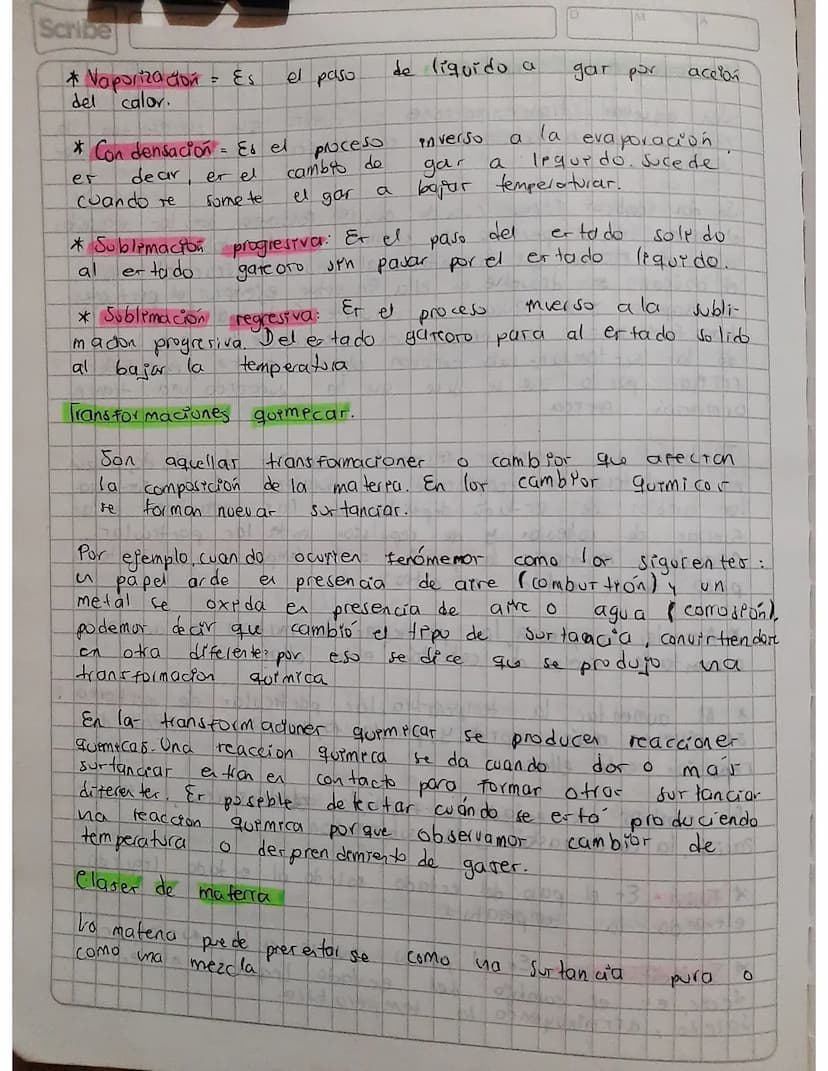 Scribe
D M A
* Vaporización = Es el paso de líquido a gas por acción
del calor.
* Condensación = Es el proceso inverso a la evaporación,
es decir, es el cambio de gas a líquido. Sucede
cuando se somete el gas a bajas temperaturas.
* Sublimación progresiva: Es el paso del estado solido
al estado gaseoso sin pasar por el estado líquido.
* Sublimación regresiva: Es el proceso inverso a la subli-
macion progresiva. Del estado gaseoso para al estado solido
al bajar la temperatura
Transformaciones químicas.
Son aquellas transformaciones o cambios que afectan
la composición de la materia. En los cambios químicos
se forman nuevas sustancias.
Por ejemplo, cuando ocurren fenómemos como los siguientes:
un papel arde en presencia de aire (combustión) y un
metal se oxida en presencia de aire o agua (corrosión),
podemos decir que cambió el tipo de sustancia, convirtiendose
en otra diferente; por eso se dice que se produjo una
transformacion química
En las transformaciones químicas se producen reacciones
químicas. Una reaccion química se da cuando dos o más
sustancias entran en contacto para formar otras sustancias
diferentes. Es posible detectar cuándo se está produciendo
una reaccion química porque observamos cambios de
temperatura o desprendimiento de gases.
Clases de materia
La materia puede presentarse como una sustancia pura o
como una mezcla